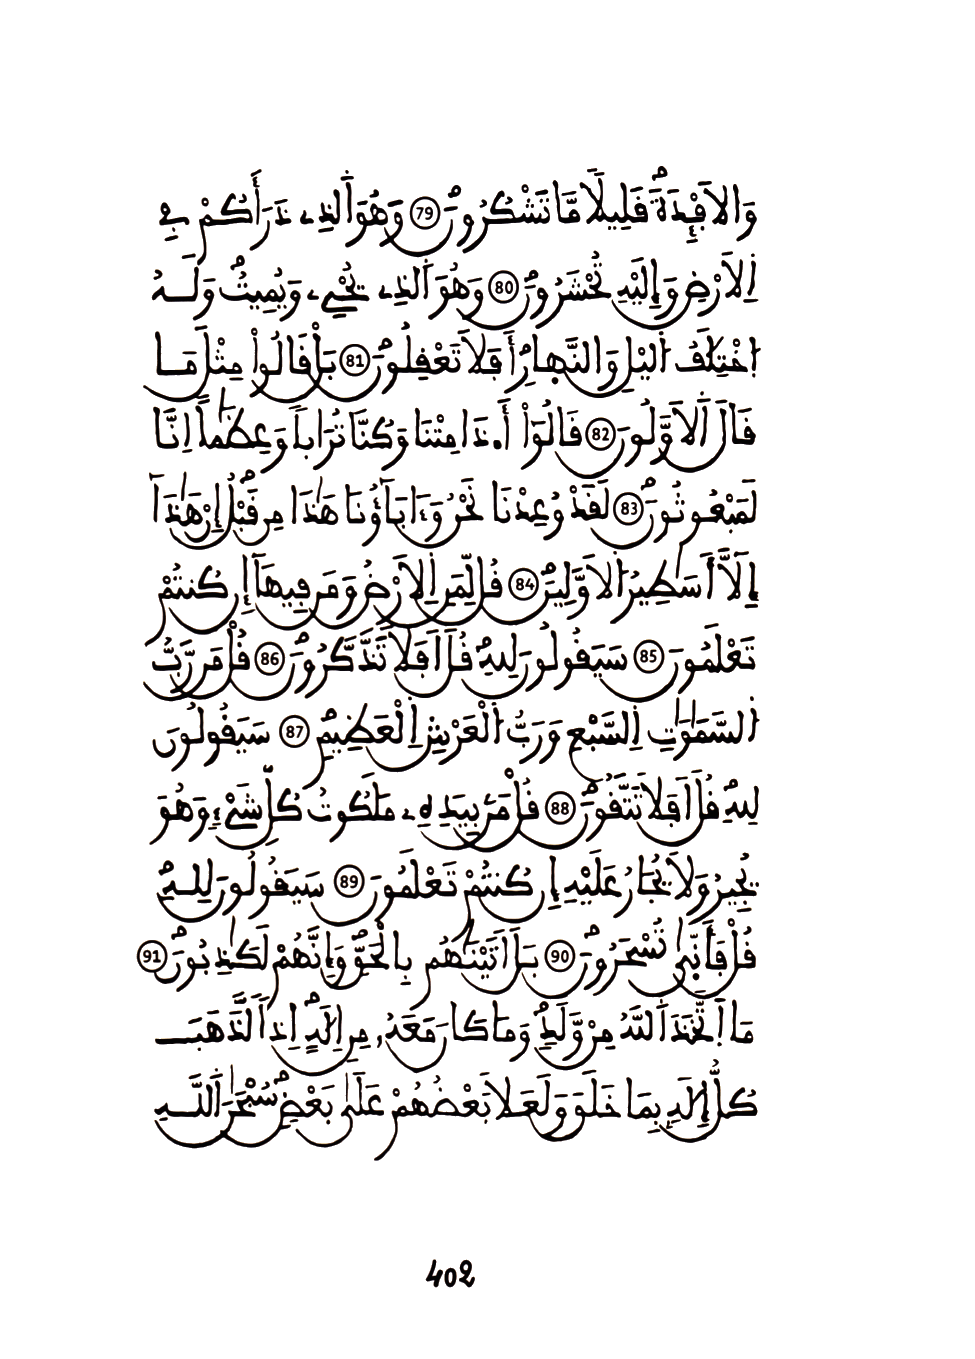 وَالَافْـِٕدَةَ قَلِيلاٗ مَّا تَشْكُرُونَ 79 وَهُوَ اَلذِے ذَرَأَكُمْ فِے
اِلَارْضِ وَإِلَيْهِ تُحْشَرُونَ 80 وَهُوَ اَلذِے يُحْيِۦ وَيُمِيتُ وَلَهُ
اُخْتِلَٰفُ اُليْلِ وَالنَّهارِ أَفَلَا تَعْقِلُونَ 81 بَلْ قَالُواْ مِثْلَ مَا
قَالَ اَلَاوَّلُونَ 82 قَالُوٓاْ أَ.ذَا مِتْنَا وَكُنَّا تُرَاباٗ وَعِظَٰماً اِنَّا
لَمَبْعُوثُونَ 83 لَقَدْ وُعِدْنَا نَحْنُ وَءَابَآؤُنَا هَٰذَا مِن قَبْلُ إِنْ هَٰذَآ
إِلَّآ أَسَٰطِيرُ اُلَاوَّلِينَ 84 قُل لِّمَنِ اِلَارْضُ وَمَن فِيهَآ إِن كُنتُمْ
تَعْلَمُونَ 85 سَيَقُولُونَ لِلهِ قُلَ اَفَلَا تَذَّكَّرُونَ 86 قُلْ مَن رَّبُّ
اُلسَّمَٰوَٰتِ اِلسَّبْعِ وَرَبُّ اُلْعَرْشِ اِلْعَظِيمِ 87 سَيَقُولُونَ
لِلهِ قُلَ اَفَلَا تَتَّقُونَ 88 قُلْ مَنۢ بِيَدِهِۦ مَلَكُوتُ كُلِّ شَےْءٖ وَهُوَ
يُجِيرُ وَلَا يُجَارُ عَلَيْهِ إِن كُنتُمْ تَعْلَمُونَ 89 سَيَقُولُونَ لِلهِ
قُلْ فَأَنّ۪يٰ تُسْحَرُونَ 90 بَلَ اَتَيْنَٰهُم بِالْحَقِّ وَإِنَّهُمْ لَكَٰذِبُونَ 91
مَا اَتَّخَذَ اَللَّهُ مِنْ وَّلَدٖ وَمَا كَانَ مَعَهُۥ مِنِ اِلَٰهٍ اِذاٗ لَّذَهَبَ
كُلُّ إِلَٰهِۢ بِمَا خَلَقَ وَلَعَلَا بَعْضُهُمْ عَلَىٰ بَعْضٖ سُبْحَٰنَ اَللَّهِ
402